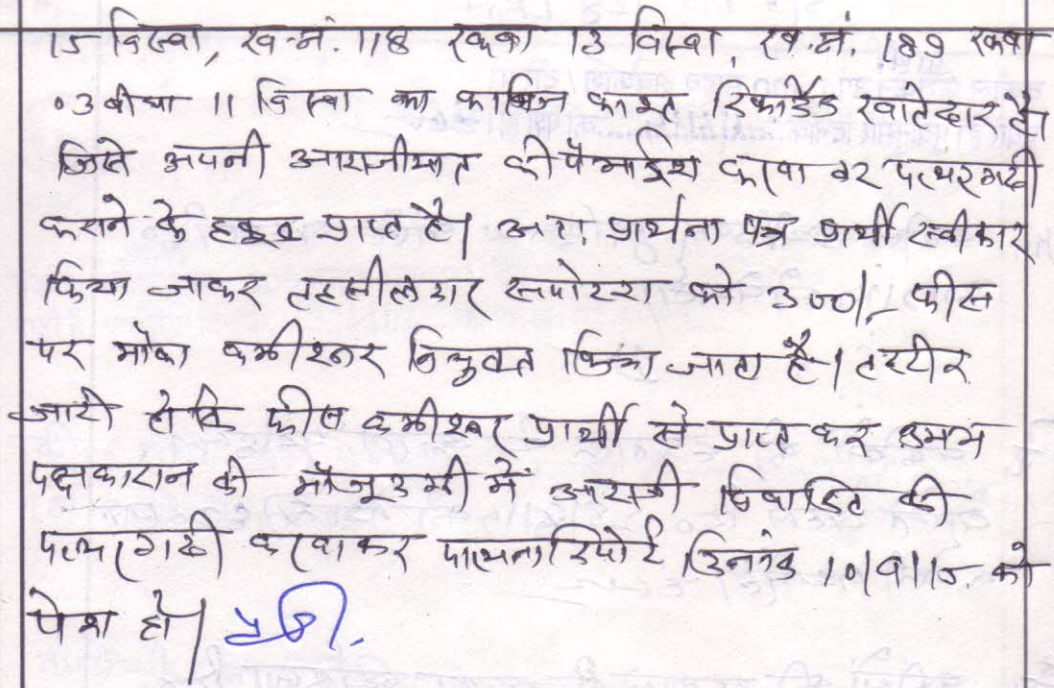 15 बिस्वा, ख.नं. 118 रकबा 13 बिस्वा, ख.नं. 189 रकबा
03 बीघा 11 बिस्वा का काबिज काश्त रिकॉर्डेड खातेदार है।
जिसे अपनी आराजीयात की पैमाईश करवा कर पत्थरगढी
कराने के हकूक प्राप्त है। अतः प्रार्थना पत्र प्रार्थी स्वीकार
किया जाकर तहसीलदार को 300/- फीस
पर मौका कमीश्नर नियुक्त किया जाता है। तहरीर
जारी हो कि फीस कमीश्नर प्रार्थी से प्राप्त कर उभय
पक्षकारान की मौजूदगी में आराजी विवादित की
पत्थरगढी करवाकर पालना रिपोर्ट दिनांक 10/9/15 को
पेश हो।